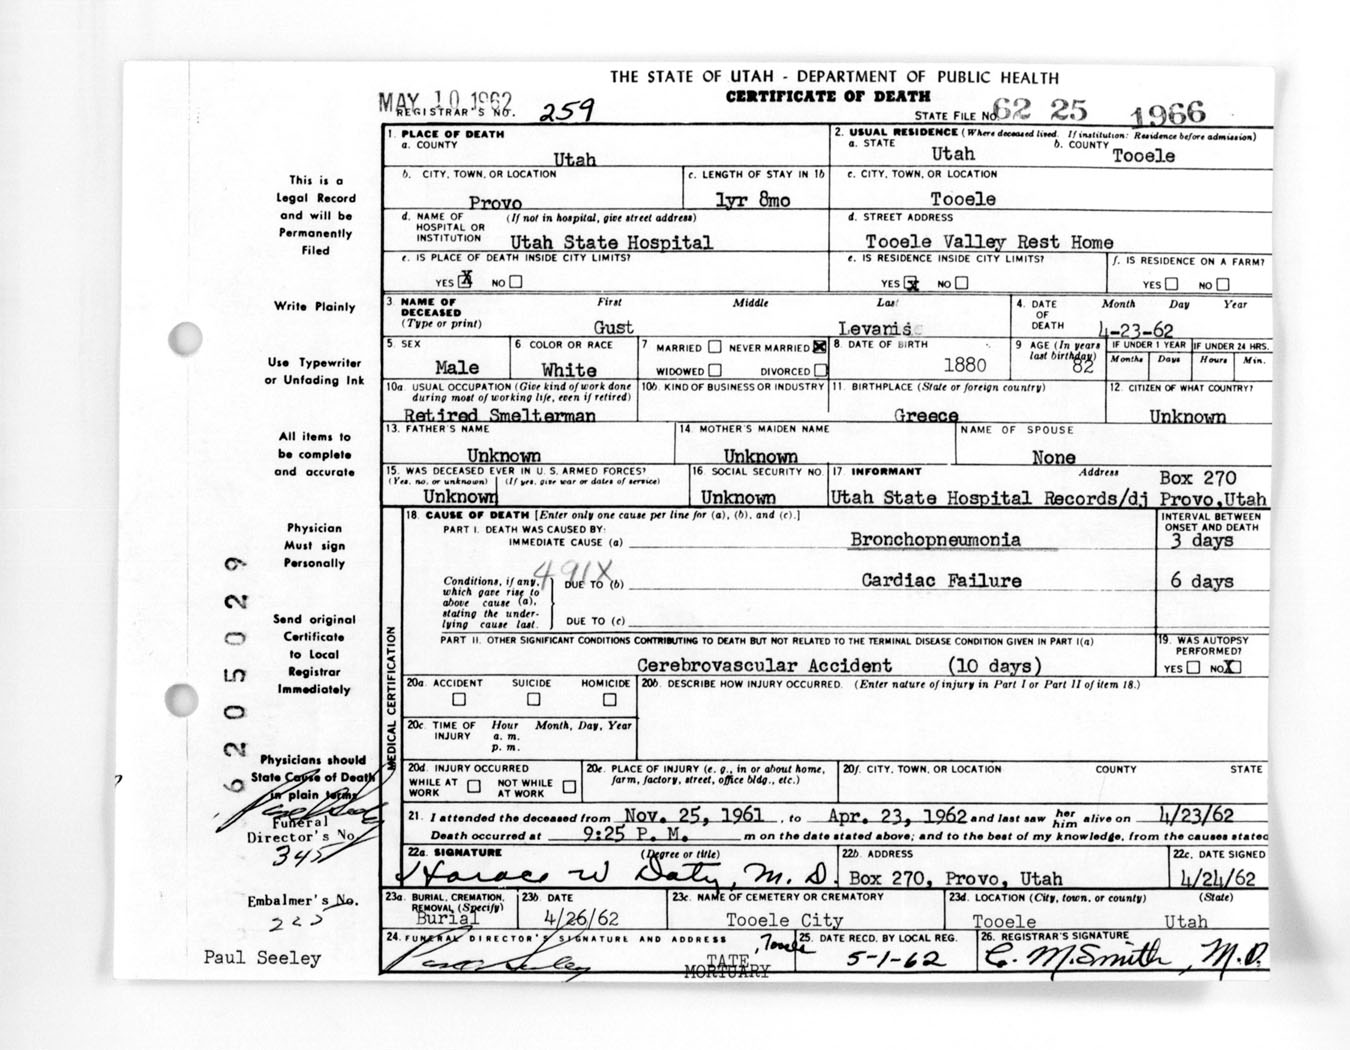 THE STATE OF UTAH - DEPARTMENT OF PUBLIC HEALTH
CERTIFICATE OF DEATH
MAY 10 1962
REGISTRAR'S NO. 259
STATE FILE NO. 62 25 1966
This is a
Legal Record
and will be
Permanently
Filed
Write Plainly
Use Typewriter
or Unfading Ink
All items to
be complete
and accurate
Physician
Must sign
Personally
Send original
Certificate
to Local
Registrar
Immediately
Physicians should
State Cause of Death
in plain terms
Funeral
Director's No.
345
Embalmer's No.
222
Paul Seeley
6205029
1. PLACE OF DEATH
a. COUNTY
Utah
2. USUAL RESIDENCE (Where deceased lived. If institution: Residence before admission)
a. STATE Utah b. COUNTY Tooele
b. CITY, TOWN, OR LOCATION
Provo
c. LENGTH OF STAY IN 1b
1yr 8mo
c. CITY, TOWN, OR LOCATION
Tooele
d. NAME OF (If not in hospital, give street address)
HOSPITAL OR
INSTITUTION Utah State Hospital
d. STREET ADDRESS
Tooele Valley Rest Home
e. IS PLACE OF DEATH INSIDE CITY LIMITS?
YES X NO
e. IS RESIDENCE INSIDE CITY LIMITS?
YES X NO
f. IS RESIDENCE ON A FARM?
YES NO
3. NAME OF DECEASED (Type or print)
First Middle Last
Gust Levanis
4. DATE OF DEATH
Month Day Year
4-23-62
5. SEX
Male
6 COLOR OR RACE
White
7 MARRIED NEVER MARRIED X
WIDOWED DIVORCED
8. DATE OF BIRTH
1880
9 AGE (In years last birthday)
82
IF UNDER 1 YEAR
Months Days
IF UNDER 24 HRS.
Hours Min.
10a. USUAL OCCUPATION (Give kind of work done
during most of working life, even if retired)
Retired Smelterman
10b. KIND OF BUSINESS OR INDUSTRY
11. BIRTHPLACE (State or foreign country)
Greece
12. CITIZEN OF WHAT COUNTRY?
Unknown
13. FATHER'S NAME
Unknown
14 MOTHER'S MAIDEN NAME
Unknown
NAME OF SPOUSE
None
15. WAS DECEASED EVER IN U.S. ARMED FORCES?
(Yes, no, or unknown) (If yes, give war or dates of service)
Unknown
16. SOCIAL SECURITY NO.
Unknown
17 INFORMANT Address
Box 270
Utah State Hospital Records/dj Provo,Utah
MEDICAL CERTIFICATION
18. CAUSE OF DEATH [Enter only one cause per line for (a), (b), and (c).]
INTERVAL BETWEEN
ONSET AND DEATH
PART I. DEATH WAS CAUSED BY:
IMMEDIATE CAUSE (a) Bronchopneumonia 3 days
491X
Conditions, if any,
which gave rise to
above cause (a),
stating the under-
lying cause last.
DUE TO (b) Cardiac Failure 6 days
DUE TO (c)
PART II. OTHER SIGNIFICANT CONDITIONS CONTRIBUTING TO DEATH BUT NOT RELATED TO THE TERMINAL DISEASE CONDITION GIVEN IN PART I(a)
Cerebrovascular Accident (10 days)
19. WAS AUTOPSY
PERFORMED?
YES NO X
20a. ACCIDENT SUICIDE HOMICIDE
20b. DESCRIBE HOW INJURY OCCURRED. (Enter nature of injury in Part I or Part II of item 18.)
20c. TIME OF INJURY
Hour Month, Day, Year
a. m.
p. m.
20d. INJURY OCCURRED
WHILE AT WORK NOT WHILE AT WORK
20e. PLACE OF INJURY (e. g., in or about home,
farm, factory, street, office bldg., etc.)
20f. CITY, TOWN, OR LOCATION COUNTY STATE
21. I attended the deceased from Nov. 25, 1961, to Apr. 23, 1962 and last saw her him alive on 4/23/62
Death occurred at 9:25 P. M. m on the date stated above; and to the best of my knowledge, from the causes stated
22a. SIGNATURE (Degree or title)
Horace W Doty, M. D.
22b. ADDRESS
Box 270, Provo, Utah
22c. DATE SIGNED
4/24/62
23a. BURIAL, CREMATION,
REMOVAL (Specify)
Burial
23b. DATE
4/26/62
23c. NAME OF CEMETERY OR CREMATORY
Tooele City
23d. LOCATION (City, town, or county) (State)
Tooele Utah
24. FUNERAL DIRECTOR'S SIGNATURE AND ADDRESS
Paul Seeley Tooele
TATE
MORTUARY
25. DATE RECD. BY LOCAL REG.
5-1-62
26. REGISTRAR'S SIGNATURE
C. M. Smith, M.D.